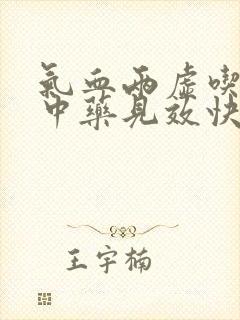 氣血兩虛喫
中藥見效快
王宇楠